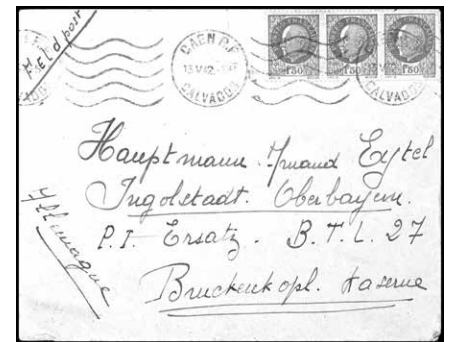 Field post
CAEN R.P.
13 V 42
CALVADOS
1F50 1F50 1F50
CALVADOS
Hauptmann Eytel
Ingolstadt. Oberbayern.
P.I. Ersatz. B.T.L. 27
Bruckenkopf. Kaserne
Allemagne